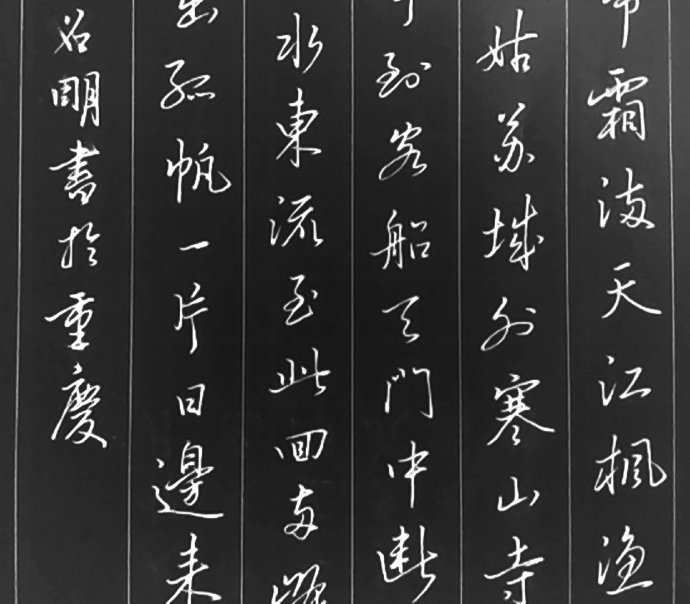 霜满天江楓渔
姑苏城外寒山寺
到客船天門中断
水東流至此回两
出孤帆一片日邊来
明書於重慶